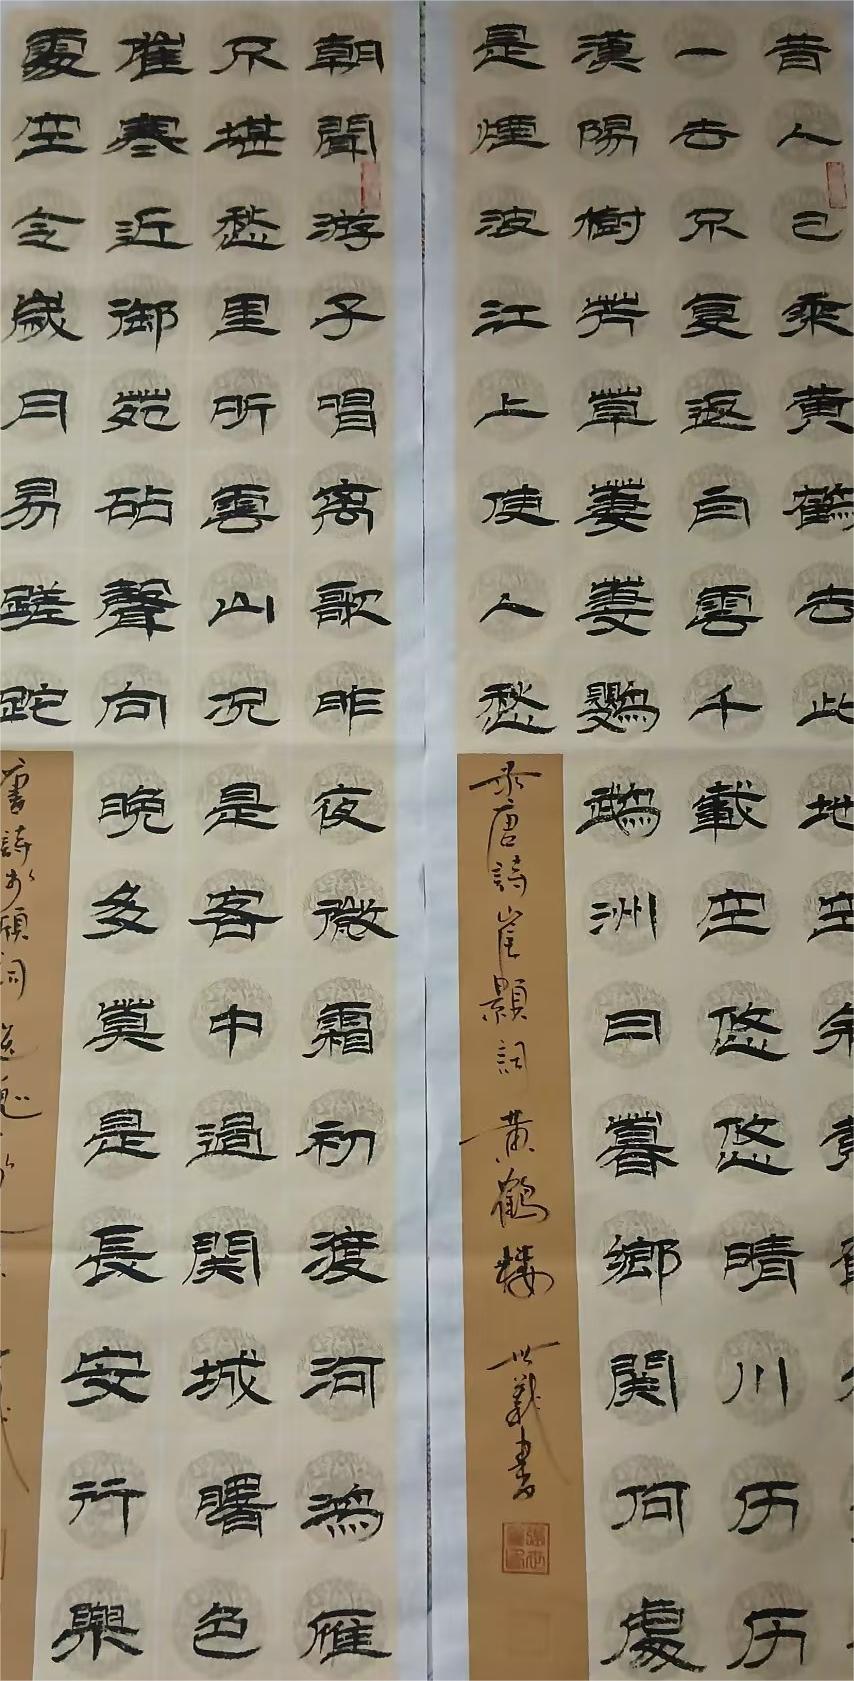 昔人已乘黄鶴去此地空余黄鶴
一去不复返白雲千載空悠悠晴川历历
漢陽樹芳草萋萋鸚鵡洲日暮鄉関何處
是煙波江上使人愁
录唐詩崔顥詞黄鶴楼 世義書
朝聞游子唱离歌昨夜微霜初渡河鴻雁
不堪愁里听雲山况是客中過関城曙色
催寒近御苑砧聲向晚多莫是長安行樂
處空令歲月易蹉跎
唐詩李颀詞送魏